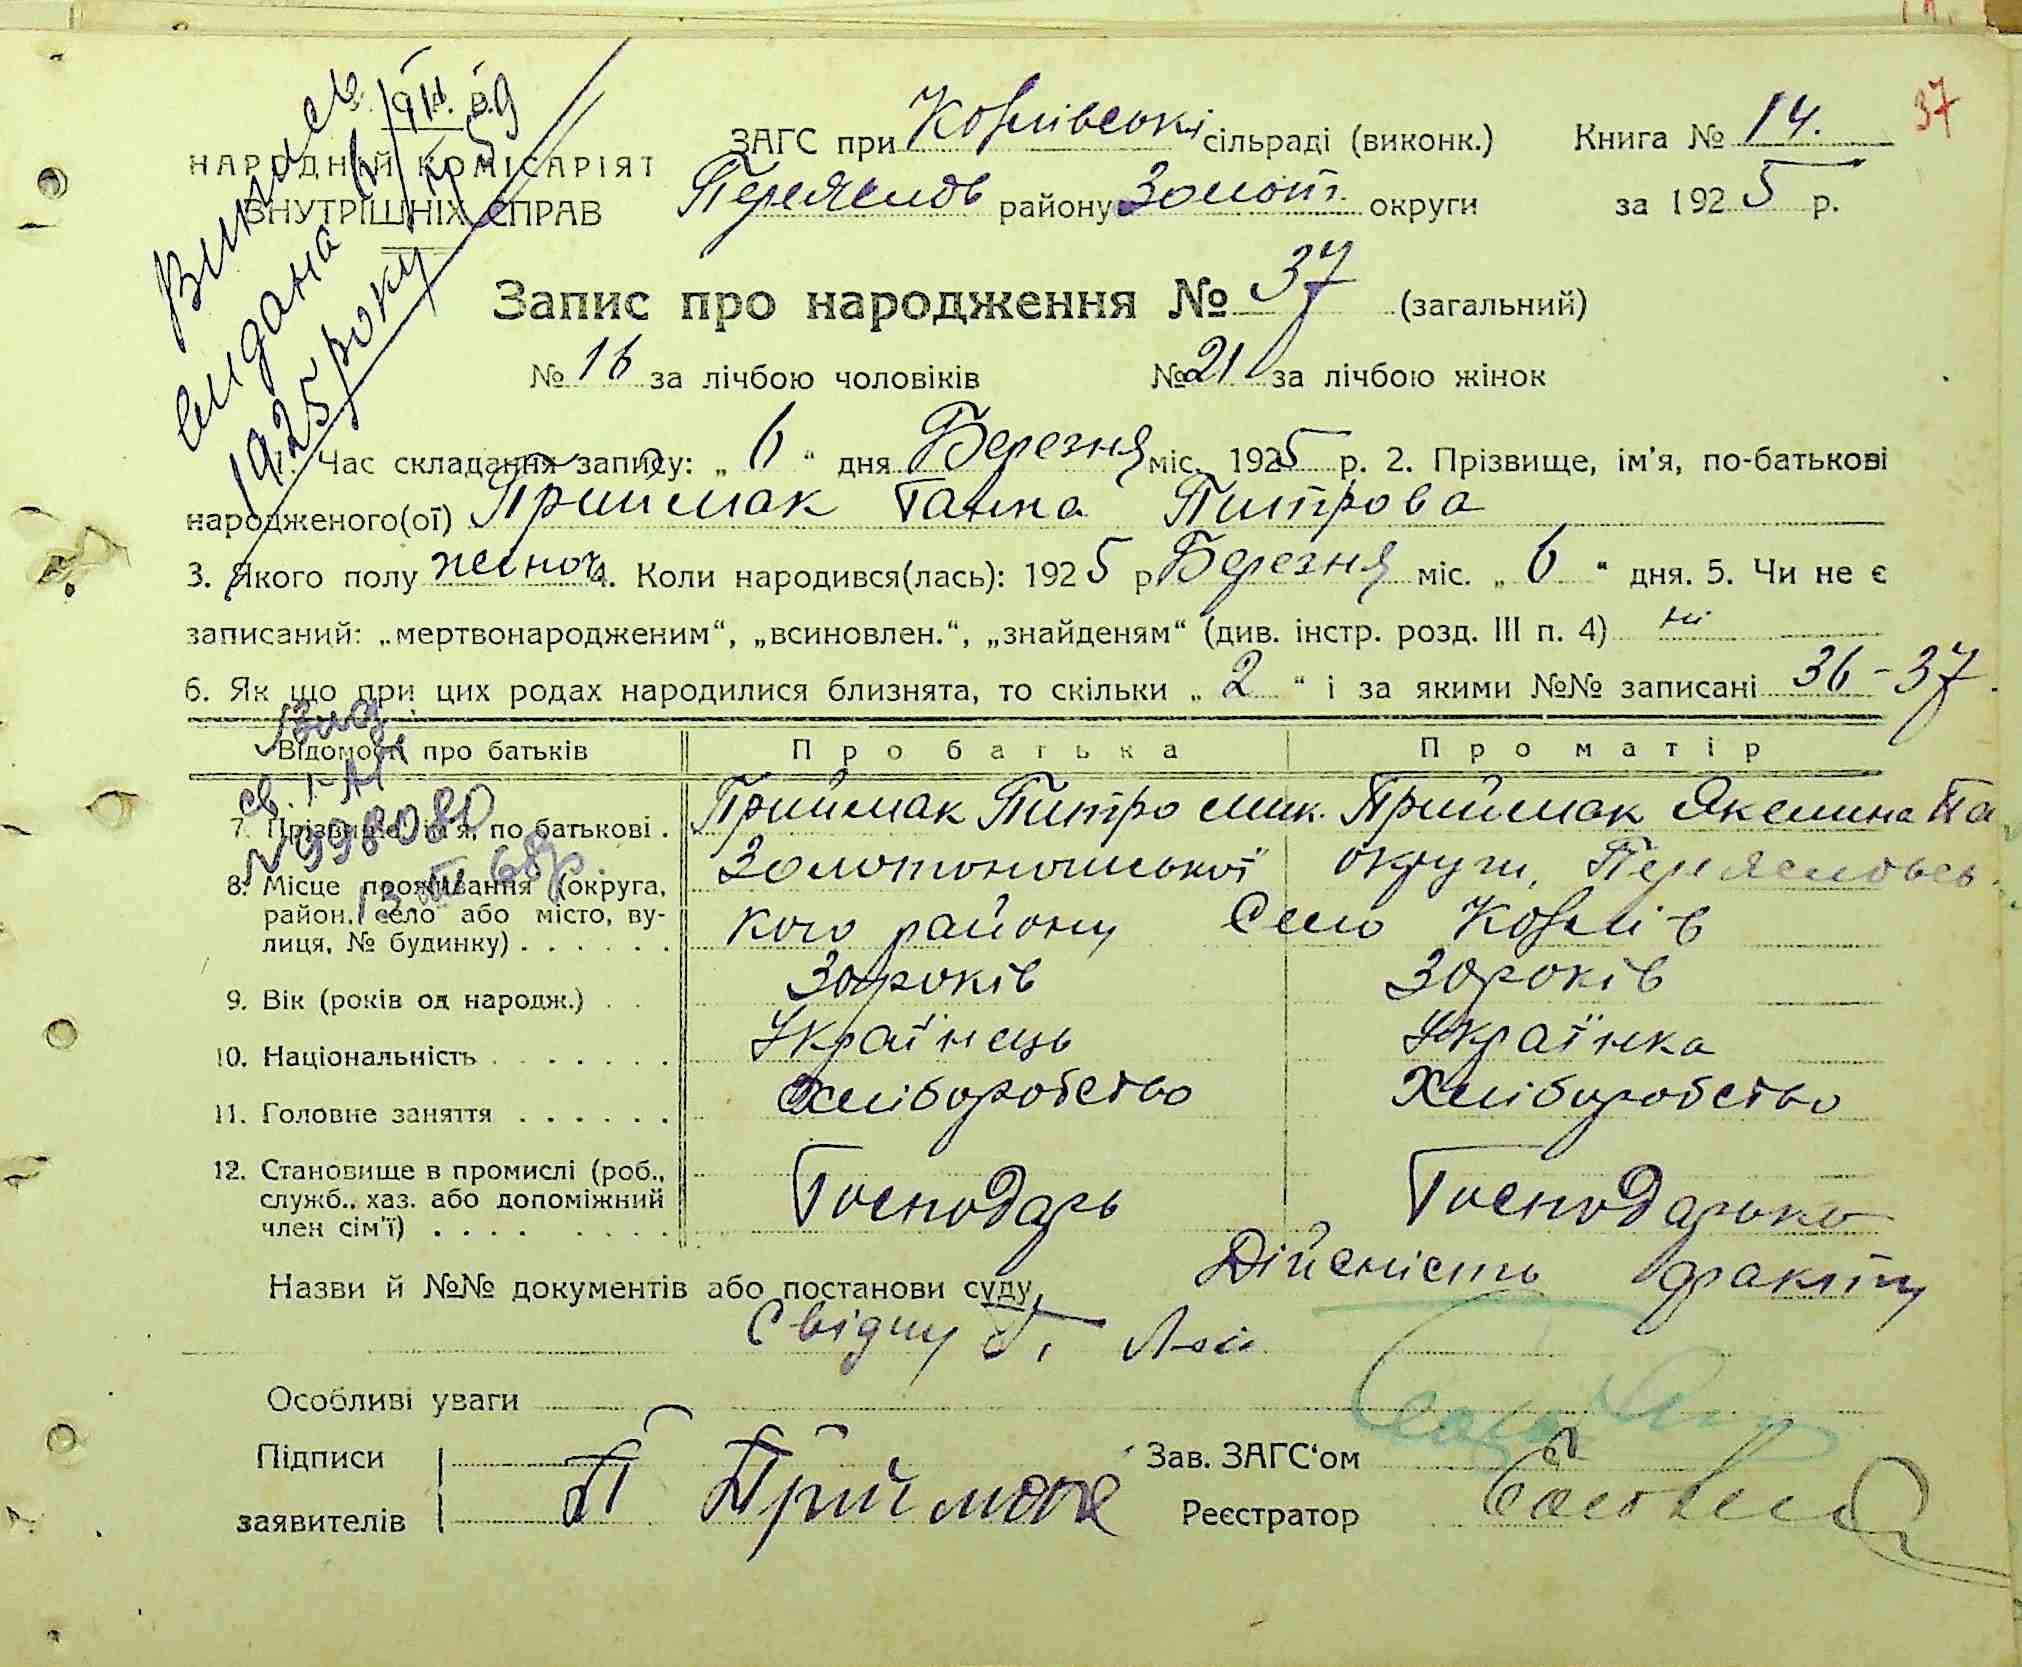 37
НАРОДНИЙ КОМІСАРІЯТ
ВНУТРІШНІХ СПРАВ
Випись
видана
1925 року
ЗАГС при Козлівські сільраді (виконк.) Книга № 14.
Переяслов району Золот. округи за 1925 р.
Запис про народження № 37 (загальний)
№ 16 за лічбою чоловіків № 21 за лічбою жінок
1. Час складання запису: „ 6 “ дня Березня міс. 1925 р. 2. Прізвище, ім'я, по-батькові
народженого(ої) Приймак Ганна Питрова
3. Якого полу жіноч. 4. Коли народився(лась): 1925 р Березня міс. „ 6 “ дня. 5. Чи не є
записаний: „мертвонародженим“, „всиновлен.“, „знайденям“ (див. інстр. розд. III п. 4) ні
6. Як що при цих родах народилися близнята, то скільки „ 2 “ і за якими №№ записані 36-37.
Відомості про батьків Про батька Про матір
7. Прізвище, ім'я, по батькові. Приймак Питро Мик. Приймак Якелина Па
8. Місце проживання (округа, район, село або місто, вулиця, № будинку) Золотоношської округи, Переясловсь-
кого району Село Козлів
9. Вік (років од народж.) 30 років 30 років
10. Національність Українець Українка
11. Головне заняття Хліборобство Хліборобство
12. Становище в промислі (роб., служб., хаз. або допоміжний член сім'ї) Господарь Господарька
Вид.
св. I-
№ 998080
13 III 68р.
Назви й №№ документів або постанови суду, Дійсність факту
Свідчу
Особливі уваги
Підписи заявителів П Приймак
Зав. ЗАГС'ом
Реєстратор